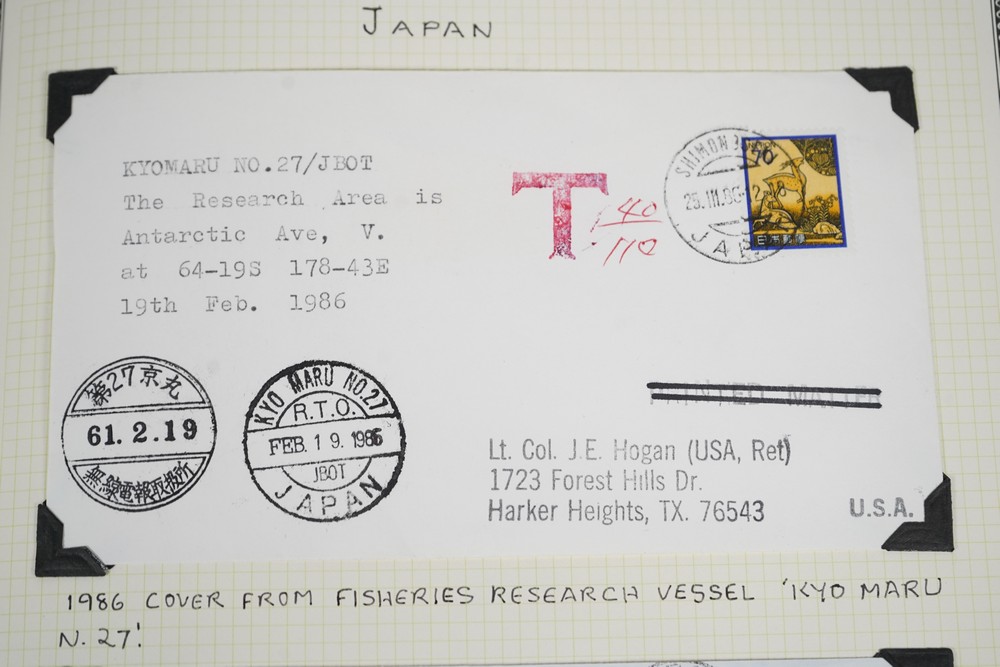 JAPAN
KYOMARU NO.27/JBOT
The Research Area is
Antarctic Ave, V.
at 64-19S 178-43E
19th Feb. 1986
T 40
110
SHIMON
25.III.86
JAPAN
70
日本郵便
第27京丸
61.2.19
無線電報取扱所
KYO MARU NO.27
R.T.O.
FEB.19.1986
JBOT
JAPAN
PRINTED MATTER
Lt. Col. J.E. Hogan (USA, Ret)
1723 Forest Hills Dr.
Harker Heights, TX. 76543
U.S.A.
1986 COVER FROM FISHERIES RESEARCH VESSEL 'KYO MARU
N. 27'.